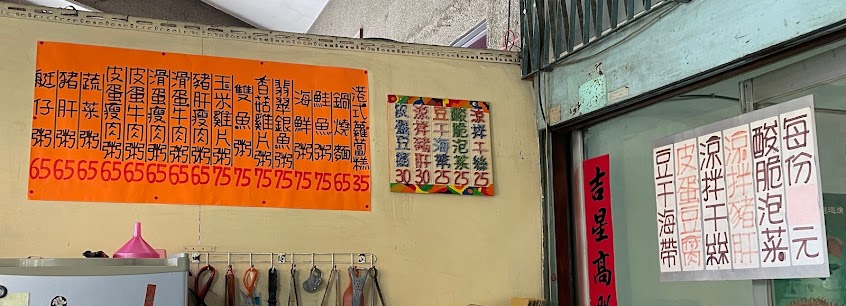 港式蘿蔔糕 35
鍋燒麵 65
鮭魚粥 75
海鮮粥 75
翡翠銀魚粥 75
香菇雞片粥 75
雙魚粥 75
玉米雞片粥 75
豬肝瘦肉粥 65
滑蛋牛肉粥 65
滑蛋瘦肉粥 65
皮蛋牛肉粥 65
皮蛋瘦肉粥 65
蔬菜粥 65
豬肝粥 65
艇仔粥 65
涼拌干絲 25
酸脆泡菜 25
豆干海帶 25
涼拌豬肝 30
皮蛋豆腐 30
吉星高
每份 元
酸脆泡菜
涼拌豬肝
涼拌干絲
皮蛋豆腐
豆干海帶